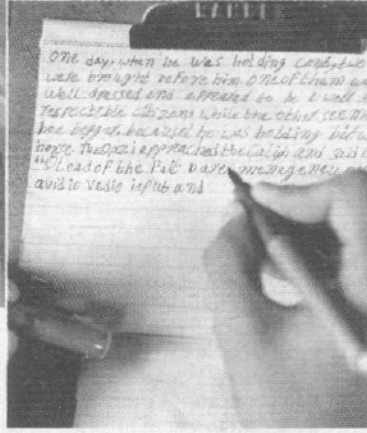 one day, when he was holding court, two
were brought before him one of them w
well dressed and appeared to be a well
respectable citizens while the other seem
be a beggar, because he was holding
horse. The Qazi approached the Caliph and said
"O Lead of the
avidio Vedio input and